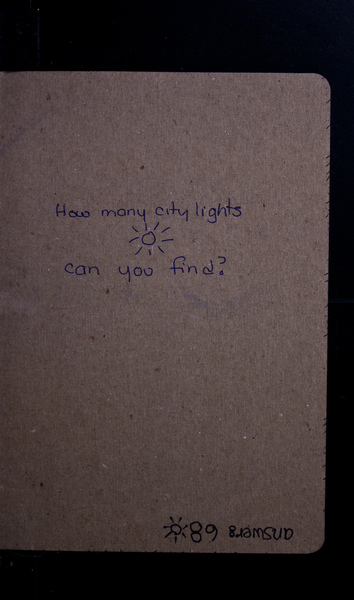 How many city lights
can you find?
answers 68